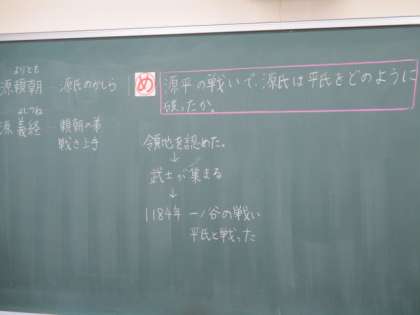 よりとも
源頼朝 - 源氏のかしら
よしつね
源義経 - 頼朝の弟
戦き上手
め
源平の戦いで、源氏は平氏をどのように
破ったか。
領地を認めた。
↓
武士が集まる
↓
1184年 一ノ谷の戦い
平氏と戦った